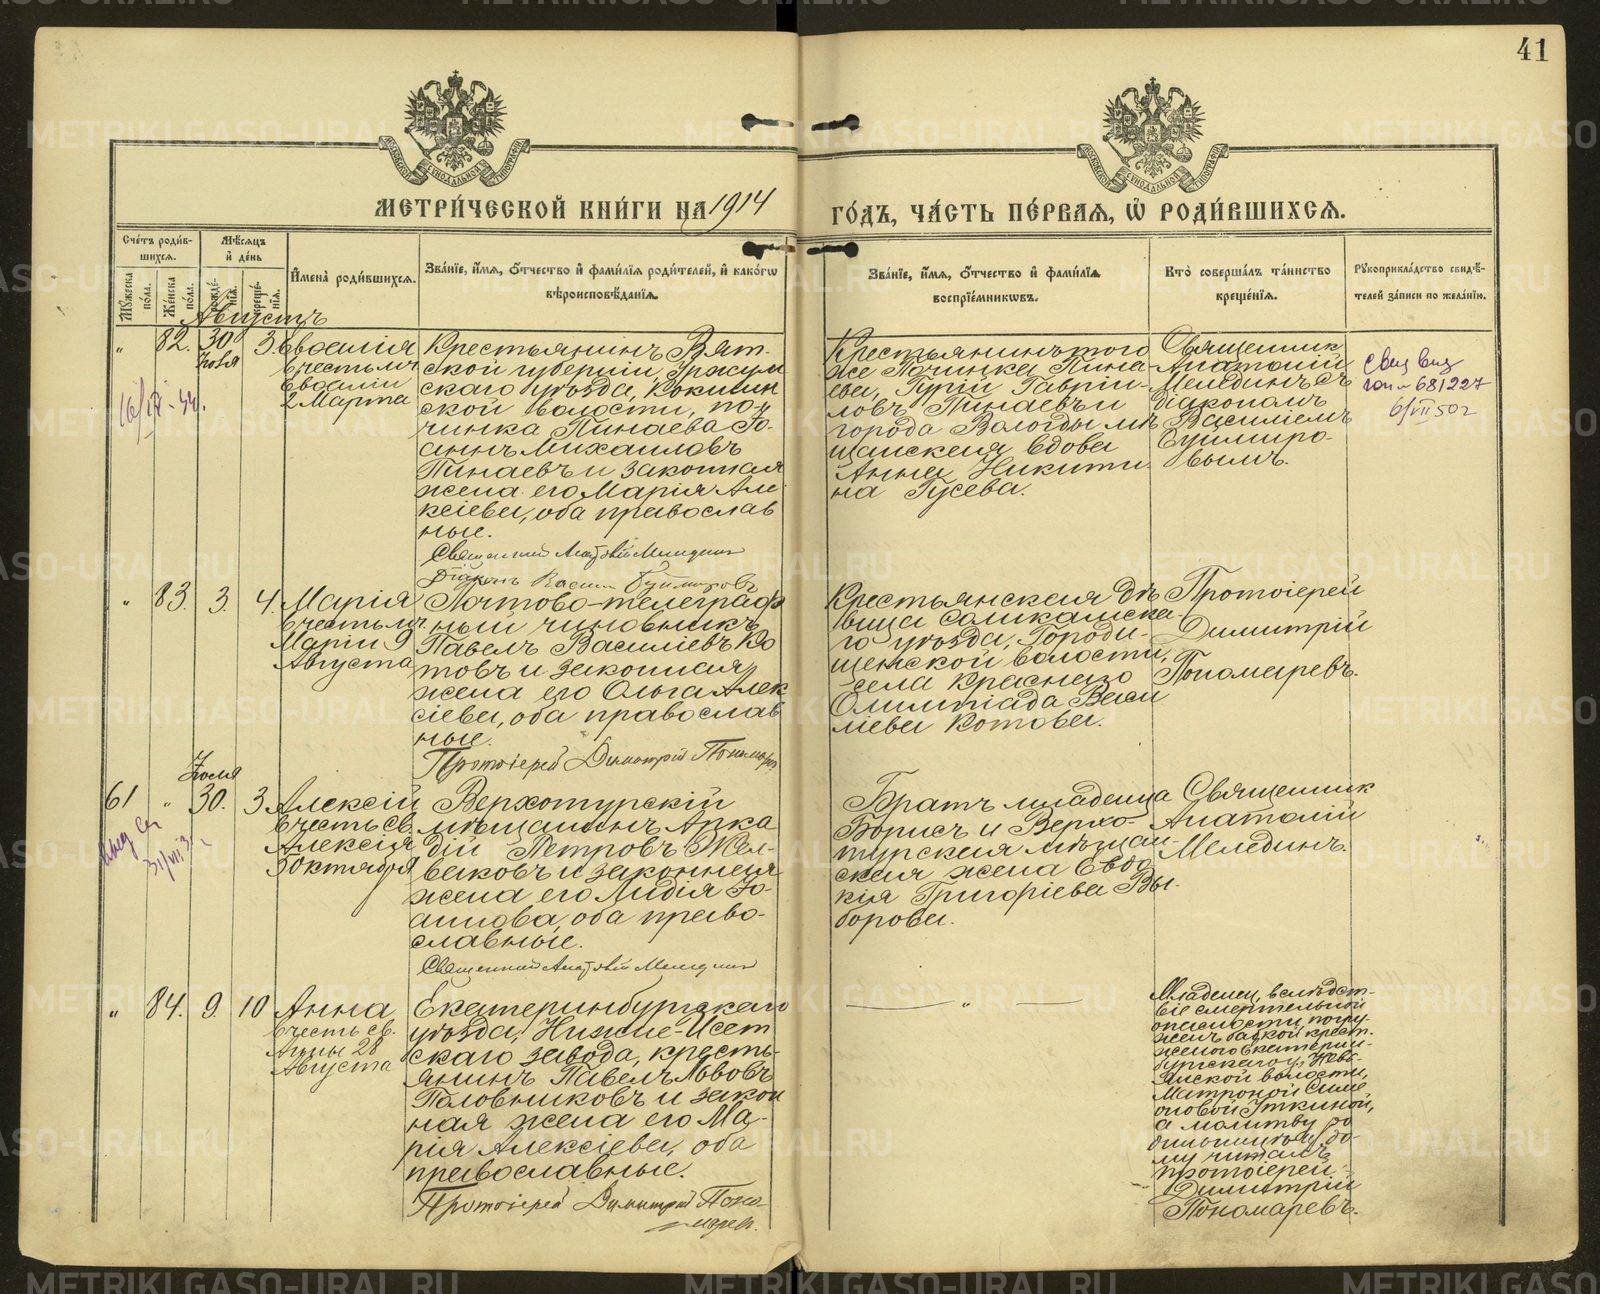 41
МЕТРИ́ЧЕСКОЙ КНИ́ГИ НА 1914
ГО́ДЪ, ЧА́СТЬ ПЕ́РВАѦ, Ѡ҆ РОДИ́ВШИХСѦ.
Сче́тъ роди́в-
шихсѧ.
Мꙋ́жеска по́ла.
Же́нска по́ла.
Мѣ́сѧцъ
и҆ де́нь
рожде́-
нїѧ.
креще́-
нїѧ.
И҆мена̀ роди́вшихсѧ.
Зва́нїе, и҆́мѧ, ѻ҆́тчество и҆ фами́лїѧ роди́телей, и҆ како́гѡ
вѣроисповѣ́данїѧ.
Зва́нїе, и҆́мѧ, ѻ҆́тчество и҆ фами́лїѧ
воспрїе́мникѡвъ.
Кто̀ соверша́лъ та́инство
креще́нїѧ.
Рꙋкоприкла́дство свидѣ́-
телей за́писи по жела́нїю.
Августъ
„ 82. 30 Іюля 3.
Евдокія
в честь мч
Евдокіи
2 Марта
Крестьянинъ Вят-
ской губерніи, Яранск
скаго уѣзда,
ской волости, по-
чинка Пинаева Іо-
аннъ Михаиловъ
Пинаевъ и законная
жена его Марія Але
ксіева, оба православ
ные.
Священникъ Анатолій Мелединъ
Діаконъ Василій
Крестьянинъ того
же Починка Пина-
ева, Гурій Гаврі-
ловъ Пинаевъ и
города Вологды мѣ
щанская вдова
Анна Никити
на Гусева.
Священникъ
Анатолій
Мелединъ съ
діакономъ
Василіемъ
„ 83. 3. 4.
Марія
в честь мч
Маріи 9
Августа
Почтово-телеграф
ный чиновникъ
Павелъ Василіевъ Ко
товъ и законная
жена его Ольга Алек
сіева, оба православ
ные.
Протоіерей Димитрій Пономарев
Крестьянская дѣ
вица Соликамска
го уѣзда, Городи-
щенской волости,
села Краснаго
Олимпіада Васи
ліева Котова.
Протоіерей
Димитрій
Пономаревъ.
Іюля
61 „ 30. 3.
Алексій
в честь св.
Алексія
5 Октября
Верхотурскій
мѣщанинъ Арка
дій Петровъ Жел-
ваковъ и законная
жена его Лидія Іо-
аннова, оба право-
славные.
Священникъ Анатолій Мелединъ
Братъ младенца
Борисъ и Верхо-
турская мѣщан-
ская жена Евдо
кія Григоріева Вы-
борова.
Священник
Анатолій
Мелединъ.
„ 84. 9. 10
Анна
в честь св.
Анны 28
Августа
Екатеринбургскаго
уѣзда, Нижне-Исет
скаго завода, кресть-
янинъ Павелъ Львовъ
Половниковъ и закон
ная жена его Ма-
рія Алексіева, оба
православные.
Протоіерей Димитрій Поно-
марев.
„
Младенец, вслѣдст-
віе смертельной
опасности, погру-
женъ бабкой крест.
женою Екатерин-
бургскаго у, Невь-
янской волости,
Матроной Симе
оновой Уткиной,
а молитву ро
дильницѣ на до-
му читалъ
протоіерей
Димитрій
Пономаревъ.